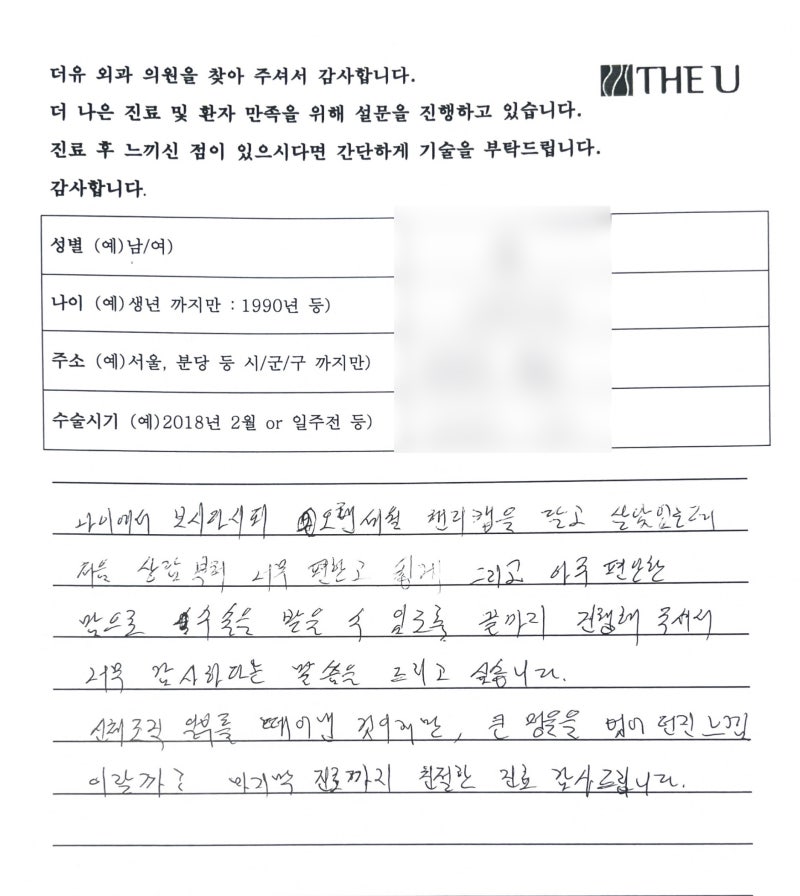 더유 외과 의원을 찾아 주셔서 감사합니다.
THE U
더 나은 진료 및 환자 만족을 위해 설문을 진행하고 있습니다.
진료 후 느끼신 점이 있으시다면 간단하게 기술을 부탁드립니다.
감사합니다.
성별 (예)남/여)
나이 (예)생년 까지만 : 1990년 등)
주소 (예)서울, 분당 등 시/군/구 까지만)
수술시기 (예)2018년 2월 or 일주전 등)
나이에서 보시다시피 오랜세월 핸디캡을 달고 살았었는데
처음 상담부터 너무 편한고 쉽게 그리고 아주 편안한
맘으로 수술을 받을 수 있도록 끝까지 진행해 주셔서
너무 감사하다는 말씀을 드리고 싶습니다.
신체조직 일부를 떼어낸 것이지만, 큰 멍울을 벗어 던진 느낌
이랄까? 마지막 진료까지 친절한 진료 감사드립니다.